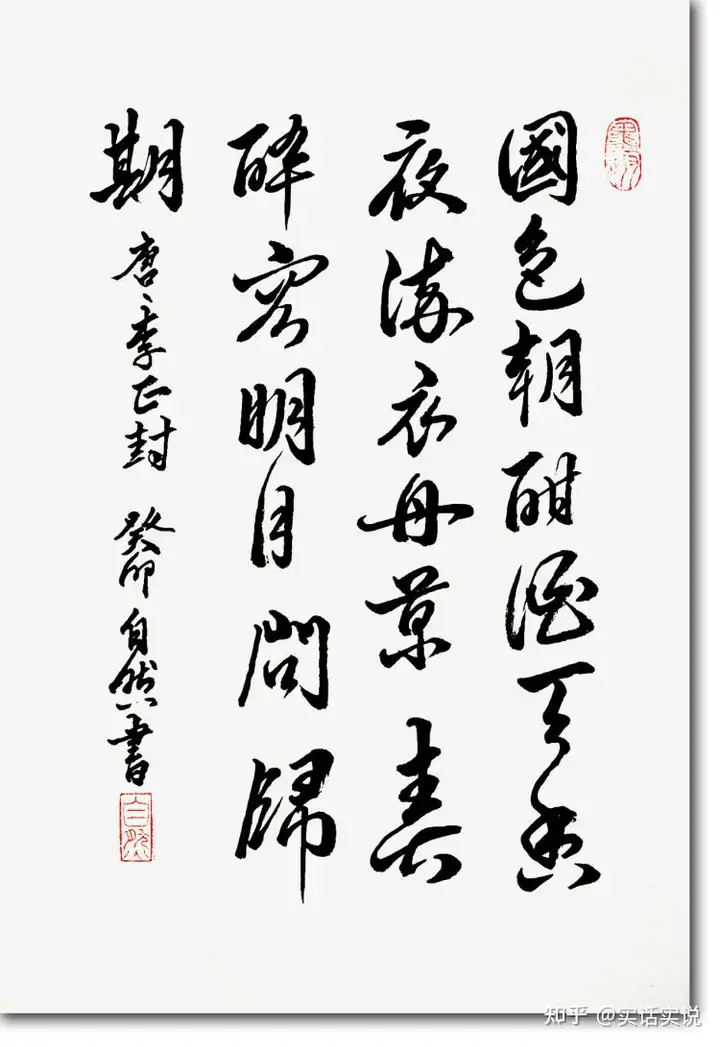 國色朝酣酒天香
夜染衣丹景春
醉容明月問歸
期 唐、李正封 癸卯自然書
自然
知乎 @实话实说